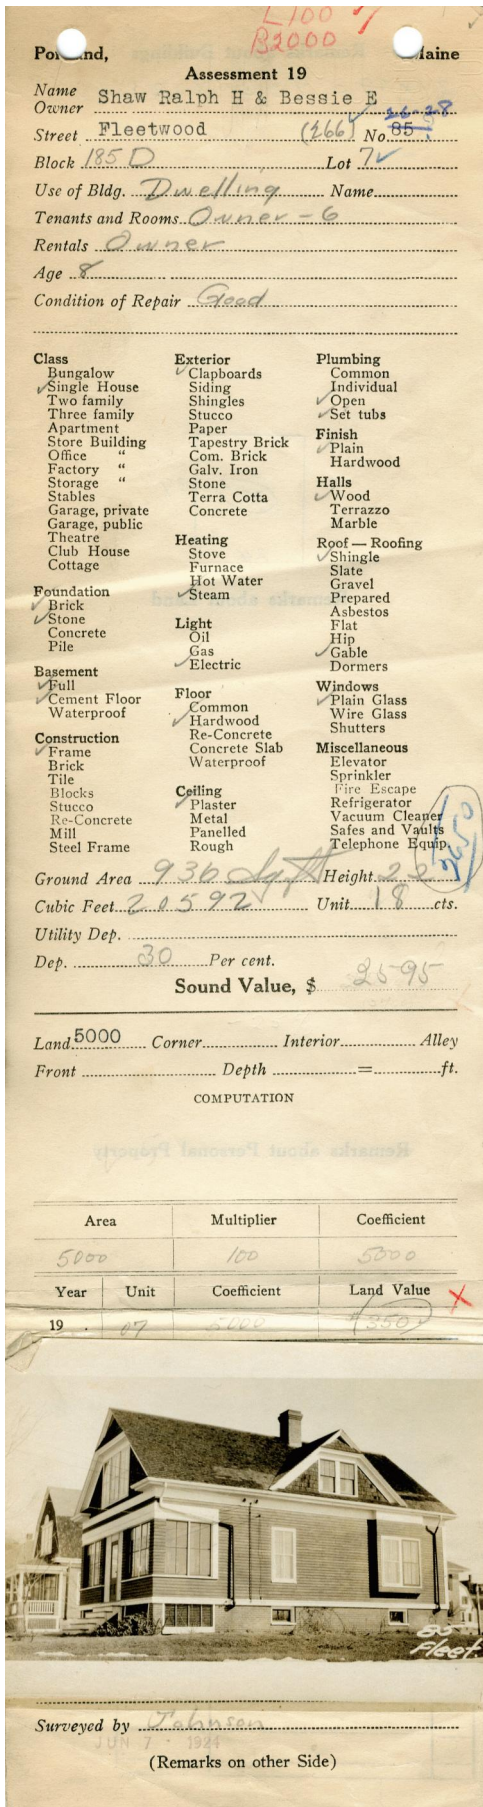 L100
B2000
Portland, Maine
Assessment 19
Name
Owner Shaw Ralph H & Bessie E
26-28
Street Fleetwood (266) No. 85
Block 185 D Lot 7
Use of Bldg. Dwelling Name
Tenants and Rooms Owner - 6
Rentals Owner
Age 8
Condition of Repair Good
Class
Bungalow
Single House
Two family
Three family
Apartment
Store Building
Office "
Factory "
Storage "
Stables
Garage, private
Garage, public
Theatre
Club House
Cottage
Foundation
Brick
Stone
Concrete
Pile
Basement
Full
Cement Floor
Waterproof
Construction
Frame
Brick
Tile
Blocks
Stucco
Re-Concrete
Mill
Steel Frame
Exterior
Clapboards
Siding
Shingles
Stucco
Paper
Tapestry Brick
Com. Brick
Galv. Iron
Stone
Terra Cotta
Concrete
Heating
Stove
Furnace
Hot Water
Steam
Light
Oil
Gas
Electric
Floor
Common
Hardwood
Re-Concrete
Concrete Slab
Waterproof
Ceiling
Plaster
Metal
Panelled
Rough
Plumbing
Common
Individual
Open
Set tubs
Finish
Plain
Hardwood
Halls
Wood
Terrazzo
Marble
Roof — Roofing
Shingle
Slate
Gravel
Prepared
Asbestos
Flat
Hip
Gable
Dormers
Windows
Plain Glass
Wire Glass
Shutters
Miscellaneous
Elevator
Sprinkler
Fire Escape
Refrigerator
Vacuum Cleaner
Safes and Vaults
Telephone Equip.
2650
Ground Area 936 Sq ft Height 22
Cubic Feet 20592 Unit 18 cts.
Utility Dep.
Dep. 30 Per cent.
Sound Value, $ 2595
Land 5000 Corner Interior Alley
Front Depth = ft.
COMPUTATION
Remarks about Personal Property
Area Multiplier Coefficient
5000 100 5000
Year Unit Coefficient Land Value
19 07 5000 350
85
Fleet.
Surveyed by Johnson
JUN 7 - 1924
(Remarks on other Side)